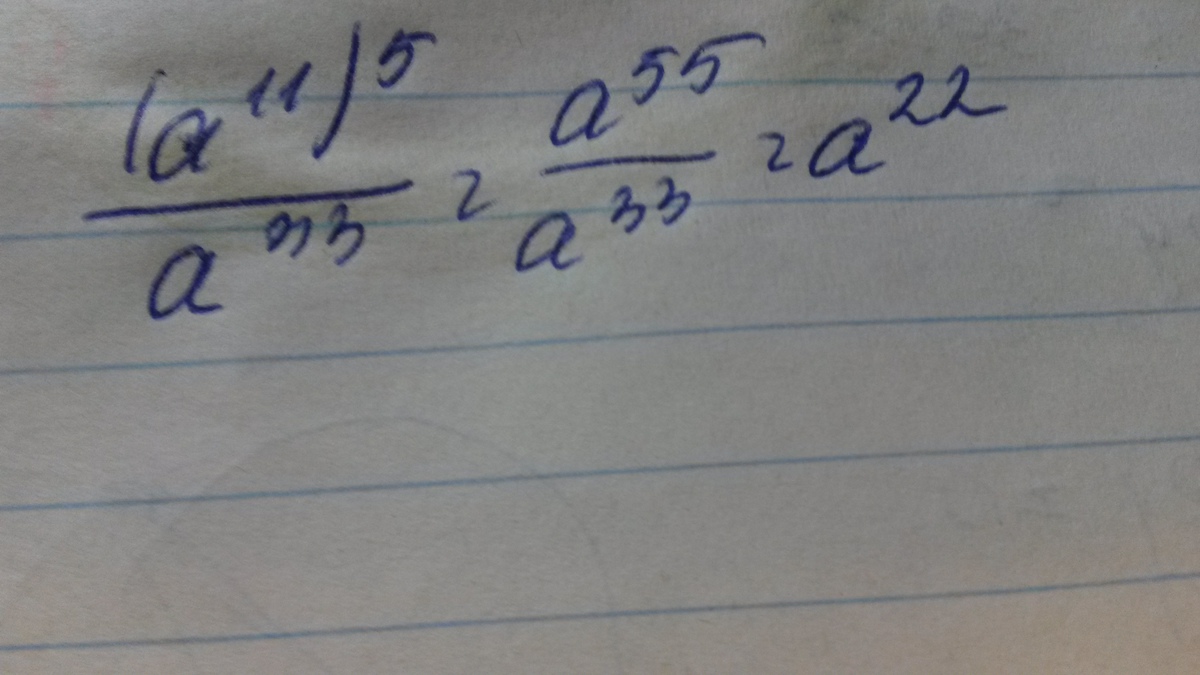 (a^11)^5 / a^33 = a^55 / a^33 = a^22